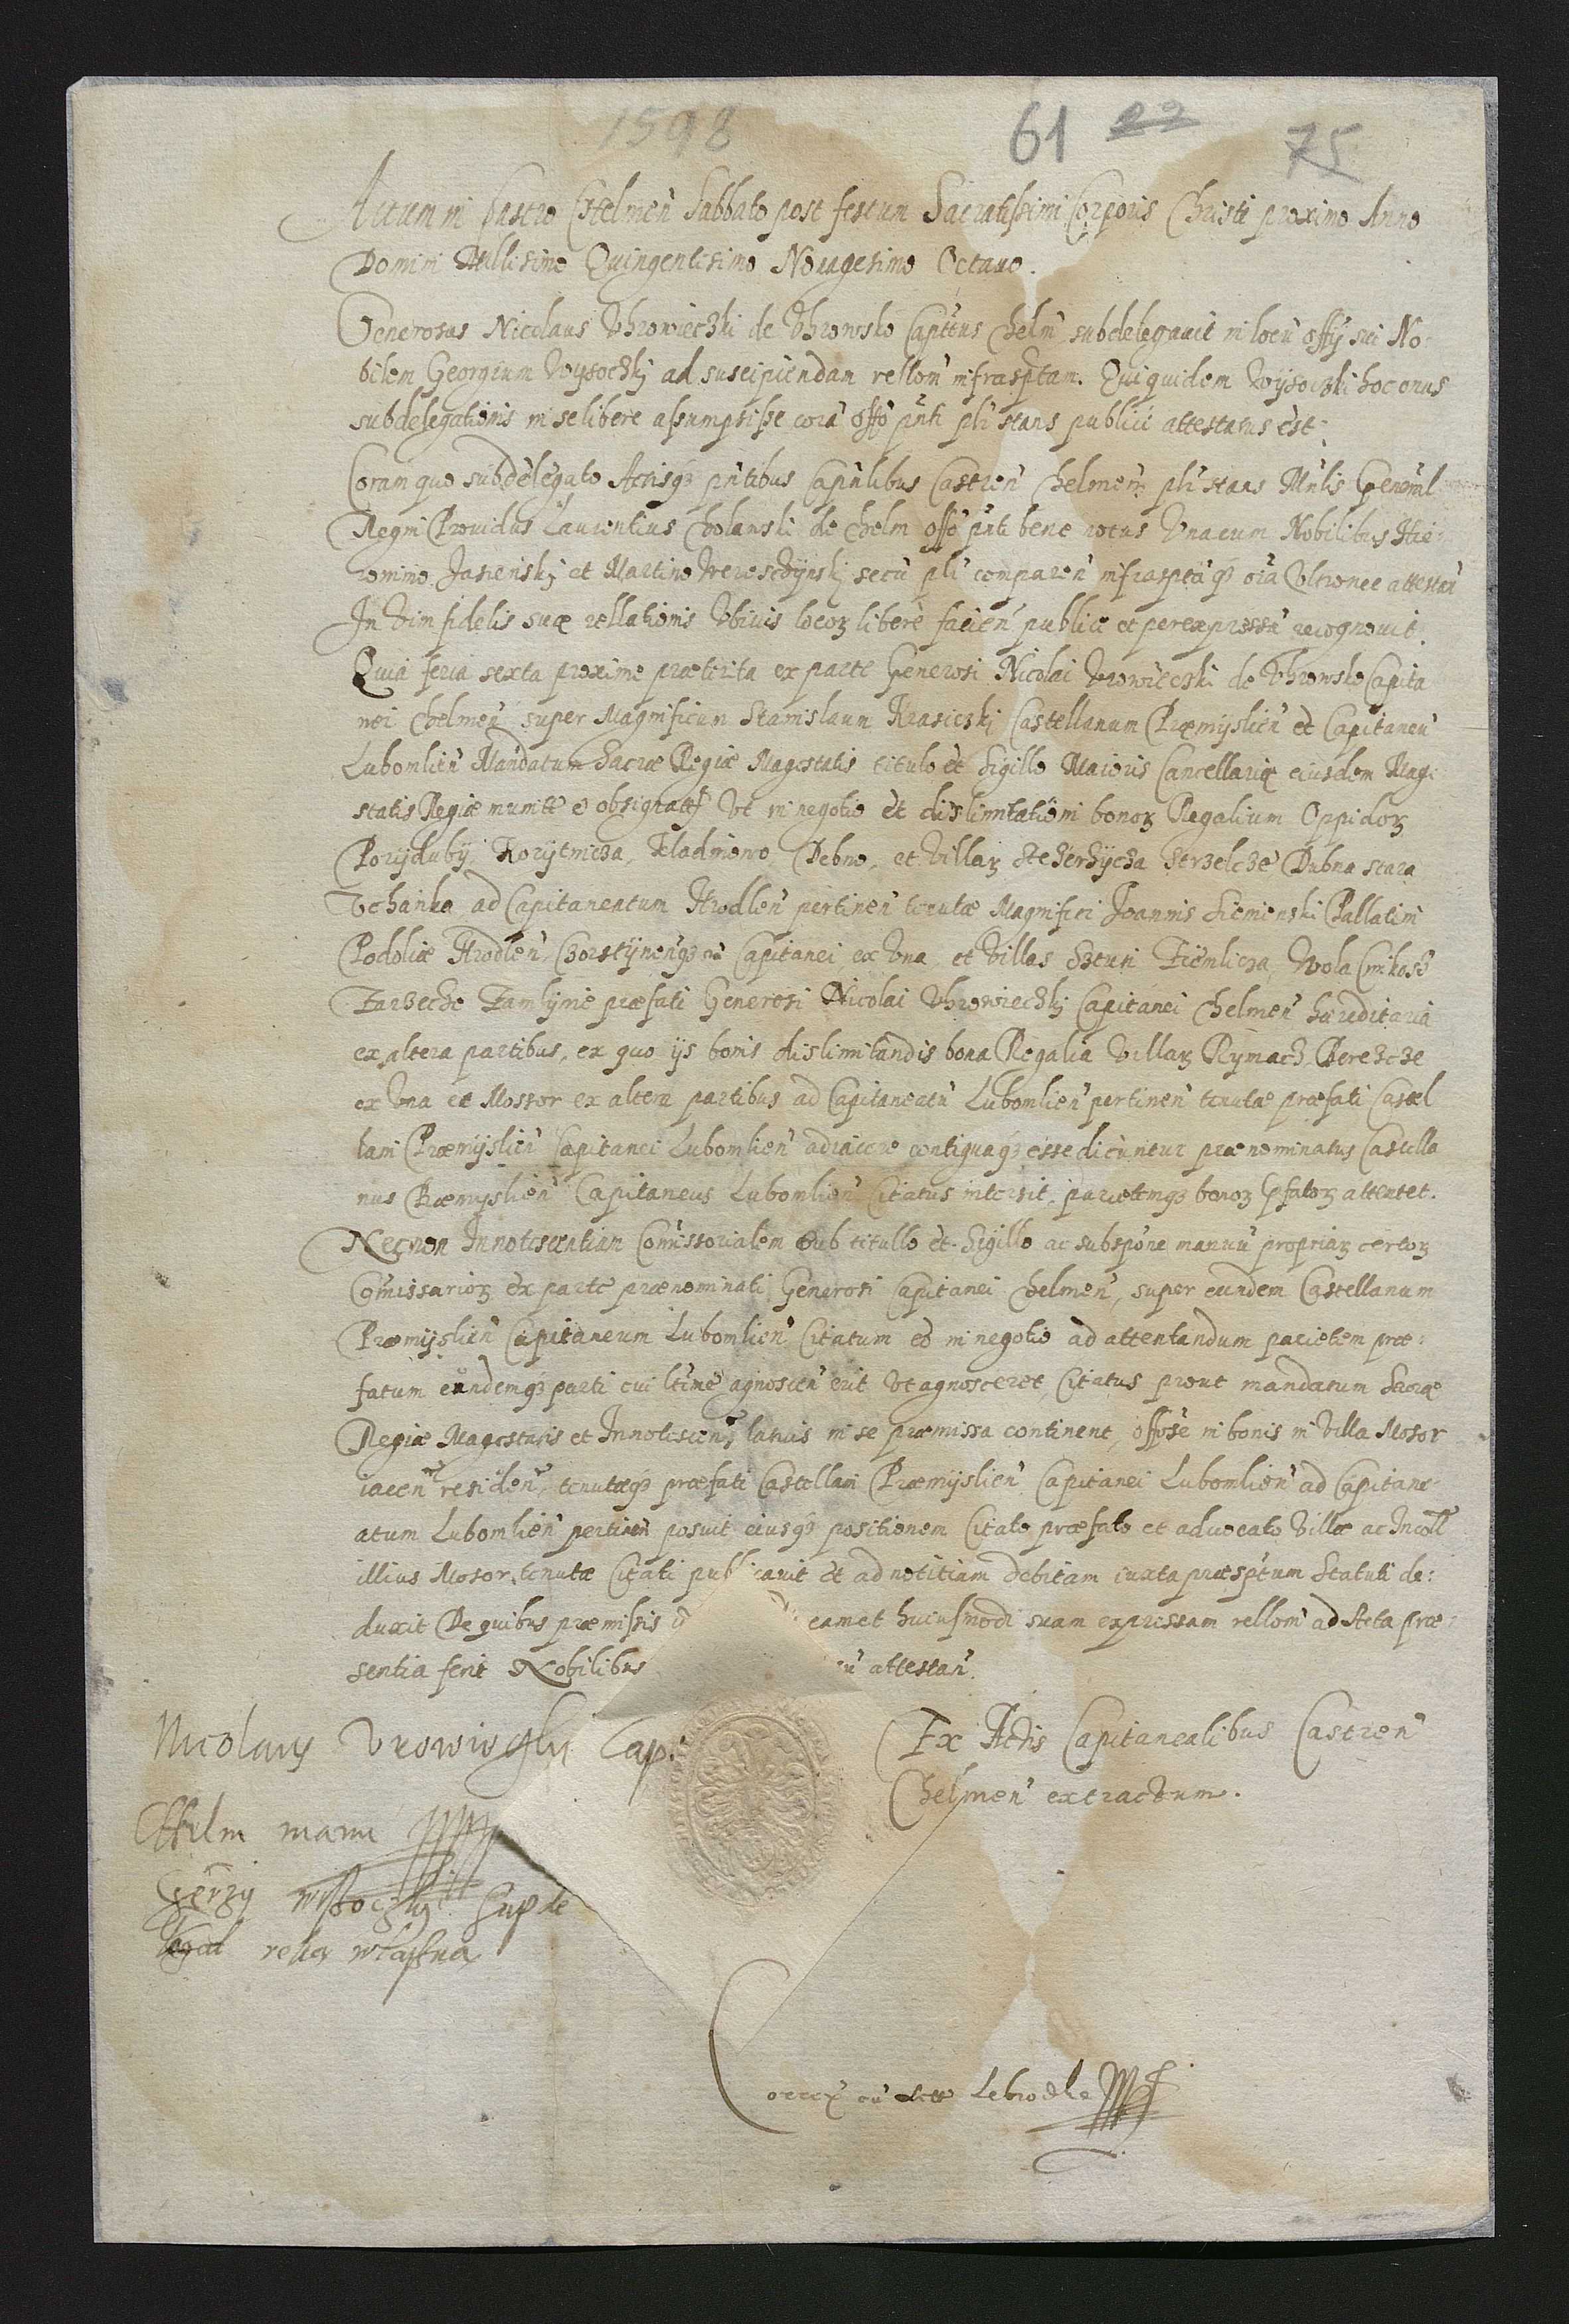 1598 61 22 75
Actum in Castro Chelmeñ Sabbato post festum Sacratissimi Corporis Christi proximo Anno
Domini Millesimo Quingentesimo Nonagesimo Octauo.
Generosus Nicolaus Vhrowieczki de Vhrowsko Capitñs Chelm̃ subdelegauit in locũ offÿ sui No:
bilem Georgium Wysoczkj ad suscipiendam rellom̃ infrasp̃tam. Qui quidem Wÿsoczki hoc onus
subdelegationis in se libere assumpsisse corã offo p̃nti pl̃i stans publicé attestatus est.
Coram quo subdelegato Actisq3 p̃ntibus Capñlibus Castreñ Chelmeñ pl̃i stans Mñlis Geñml
Regni Prouidus Laurentius Cholawski de Chelm offo p̃nti bene notus Vnacum Nobilibus Hie:
ronimo Jasienskj et Martino Wereschÿnskj secũ pl̃i compareñ infrasptãq3 oĩa Vltronee attestañ
In Vim fidelis suæ rellationis Vbiuis locoꝝ liberè facieñ publicé et per expressũ recognouit.
Quia feria sexta proxime præterita ex parte Generosi Nicolai Vrowieczki de Vhrowsko Capita
nei Chelmeñ super Magnificum Stanislaum Krasiczkj Castellanum Præmÿslieñ et Capitaneũ
Lubomlieñ Mandatum Sacræ Regiæ Magestatis titulo et Sigillo Maioris Cancellariæ eiusdem Mage
statis Regiæ munitt̃ & obsignatt̃ Vt in negotio et dislimitationi bonoꝝ Regalium Oppidoꝝ
Porÿdubÿ, Korÿtnicza, Kladniowo, Debno, et Villaꝝ Strzelcze Dubna stara
Vchanka ad Capitaneatum Hrodleñ pertineñ tenutæ Magnifici Joannis Siemienski Pallatini
Podoliæ Hrodleñ, Capitanei, ex Vna, et Villas Wola
præfati Generosi Nicolai Vhrowieczkj Capitanei Chelmeñ hæreditaria
ex altera partibus, ex quo ijs bonis dislimitandis bona Regalia Villaꝝ Rÿmacz, Berezcze
ex Vna et Mossor ex altera partibus ad Capitaneatũ Lubomlieñ pertineñ tenutæ præfati Castel
lani Præmÿslieñ Capitanei Lubomlieñ adiacere contiguaq3 esse dicuntur prænominatus Castella
nus Præmyslieñ Capitaneus Lubomlieñ Citatus intersit, parietemq3 bonoꝝ p̃fatoꝝ attentet.
Necnon Innotescentiam Com̃issorialem sub titullo et Sigillo ac subsp̃one manuũ propriaꝝ certoꝝ
Com̃issarioꝝ ex parte prænominati Generosi Capitanei Chelmeñ, super eundem Castellanum
Præmÿslieñ Capitaneum Lubomlieñ Citatum eo in negotio ad attentandum parietem præ:
fatum eundemq3 parti cui ltimé agnosceñ erit Vt agnosceret, Citatus prout mandatum Sacræ
Regiæ Magestatis et Innotesceñ latius in se præmissa continent, offose in bonis in Villa Mosor
iaceñ resideñ, tenutæq3 præfati Castellani Præmÿslieñ Capitanei Lubomlieñ ad Capitane
atum Lubomlieñ pertineñ posuit eiusq3 positionem Citato præfato et aduocato Villæ ac Incoll̃
illius Mosor, tenutæ Citati publicauit et ad notitiam debitam iuxta præsp̃tum Statuti de:
duxit De quibus præmissis eamet huiusmodi suam expressam rellom̃ ad Acta præ:
sentia ferit Nobilibus attestañ.
Nicolaus Vrowieczky Cap
Chelm manu
Ex Actis Capitanealibus Castreñ
Chelmeñ extractum.
Gerzy Wysoczky Supde
legat ręką własną
Correx̃ cũ Actis Lebiodka